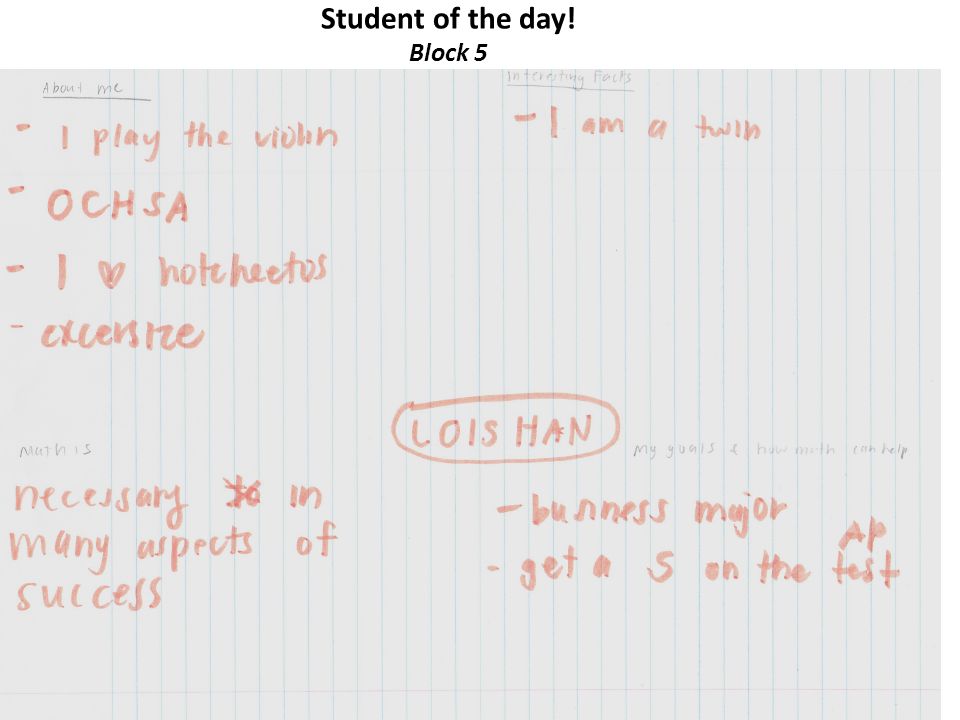 Student of the day!
Block 5
About me
- I play the violin
- OCHSA
- I ♡ hotcheetos
- excersize
Interesting Facts
- I am a twin
LOIS HAN
Math is
necessary to in
many aspects of
success
My goals & how math can help
- business major
- get a 5 on the AP test